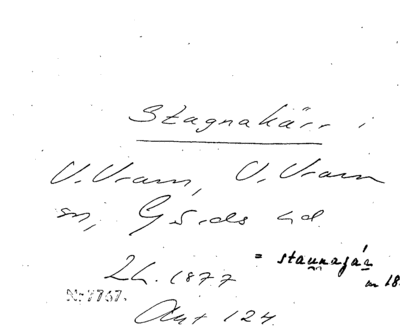 Stagnakärr i
V. Vram, V. Vram
sn, Gärds hd.
Lh. 1877
= staunajár
m 18
Nr 7767.
Akt 124